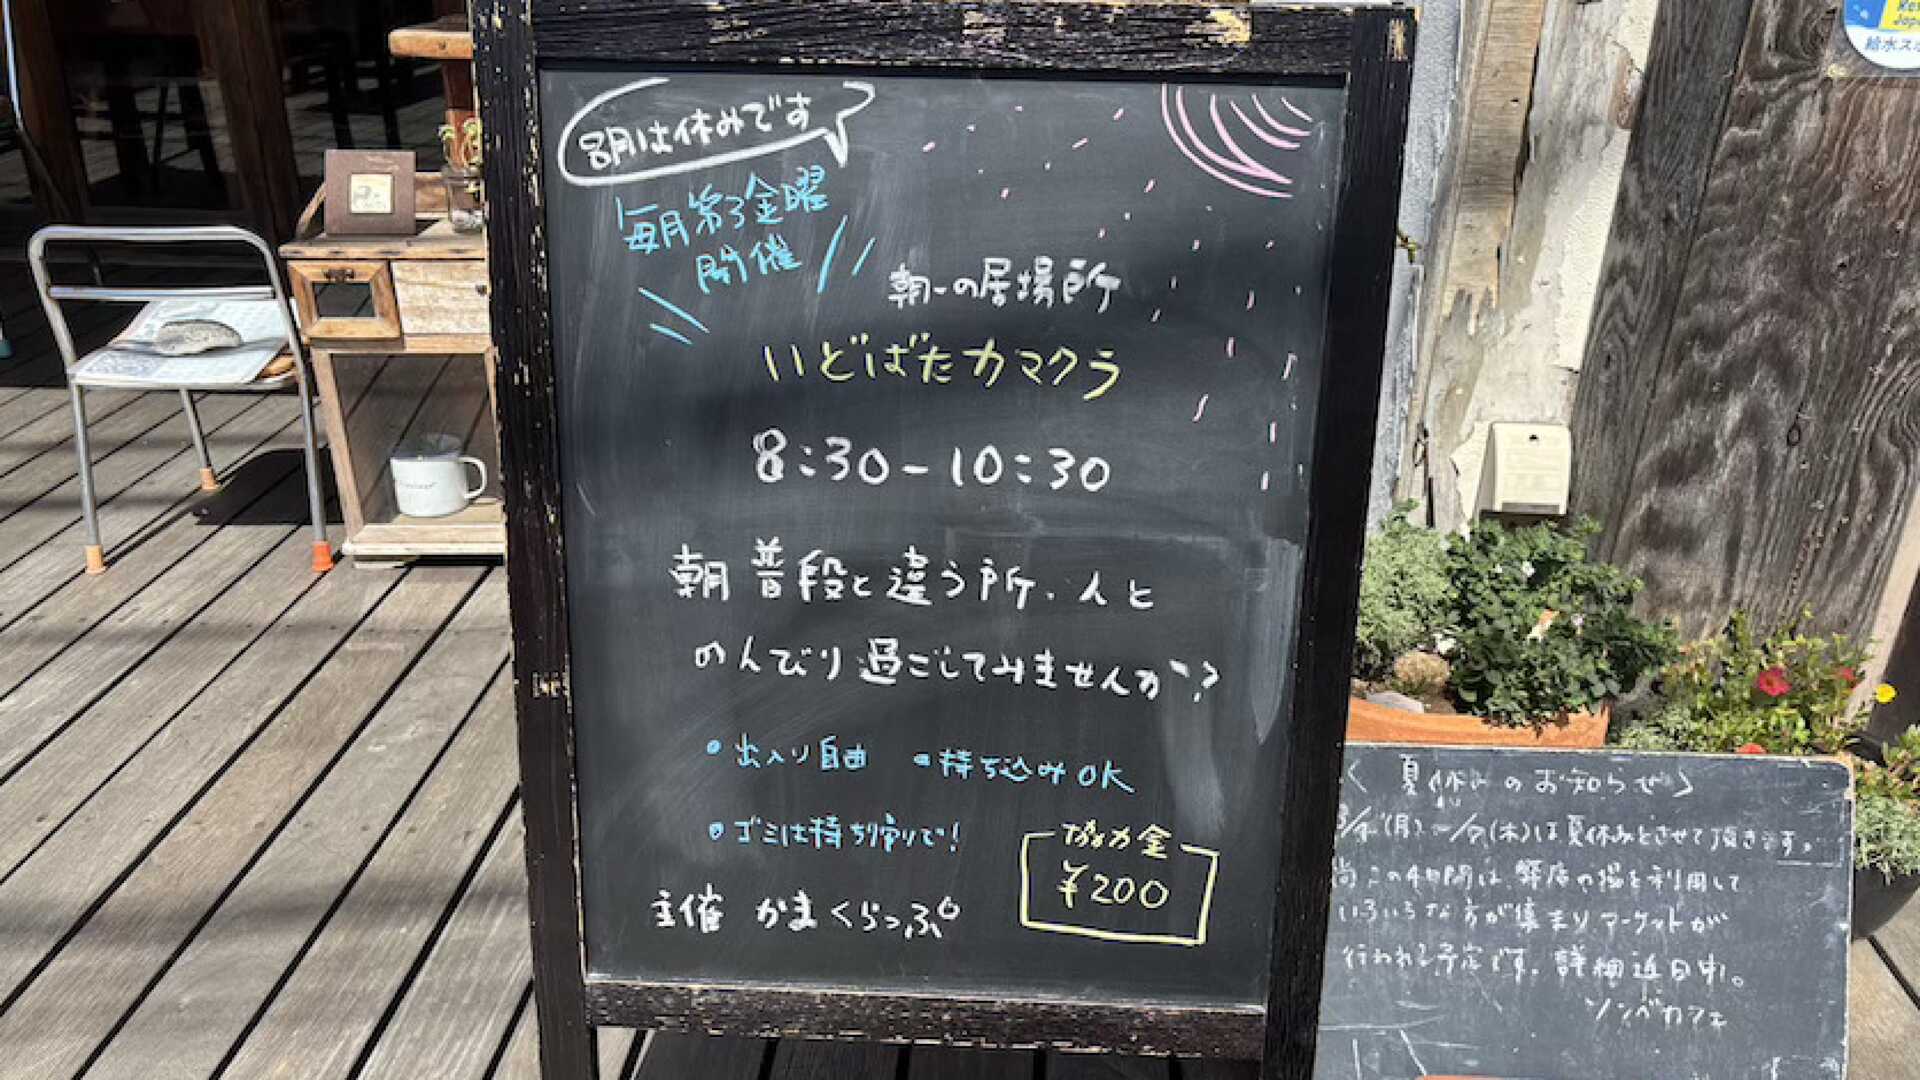 8月は休みです
毎月第3金曜
開催
朝一の居場所
いどばたカマクラ
8:30-10:30
朝 普段と違う所、人と
のんびり過ごしてみませんか?
・出入り自由 ・持ち込みOK
・ゴミは持ち帰りで!
協力金
¥200
主催 かまくらっぷ
給水ス
〈夏休みのお知らせ〉
(月)〜 (木)は夏休みとさせて頂きます。
尚この期間は、弊店の場を利用して
いろいろな方が集まりマーケットが
行われる予定です。詳細近日中。
ソンベカフェ